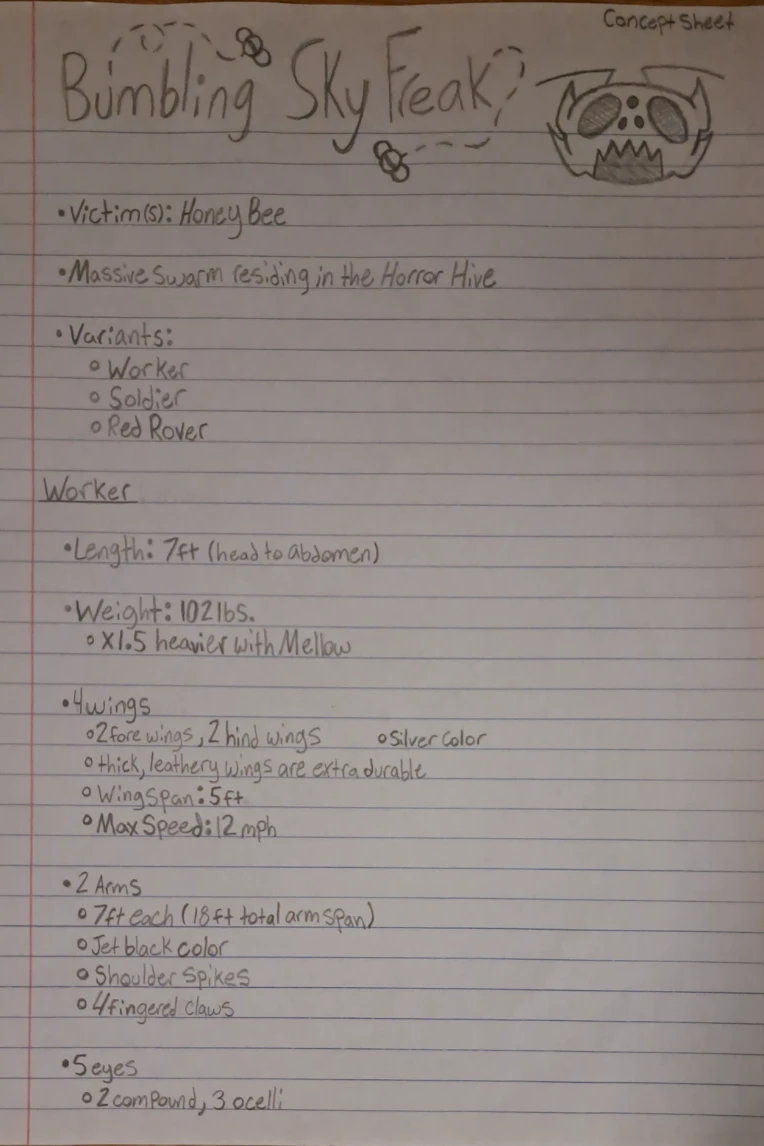 Concept Sheet
Bumbling Sky Freak
•Victim(s): Honey Bee
•Massive swarm residing in the Horror Hive
•Variants:
○ Worker
○ Soldier
○ Red Rover
Worker
•Length: 7ft (head to abdomen)
•Weight: 102 lbs.
○ X1.5 heavier with Mellow
•4 wings
○ 2 fore wings, 2 hind wings ○ Silver color
○ thick, leathery wings are extra durable
○ Wingspan: 5ft
○ Max Speed: 12 mph
•2 Arms
○ 7ft each (18ft total arm span)
○ Jet black color
○ Shoulder Spikes
○ 4 fingered claws
•5 eyes
○ 2 compound, 3 ocelli